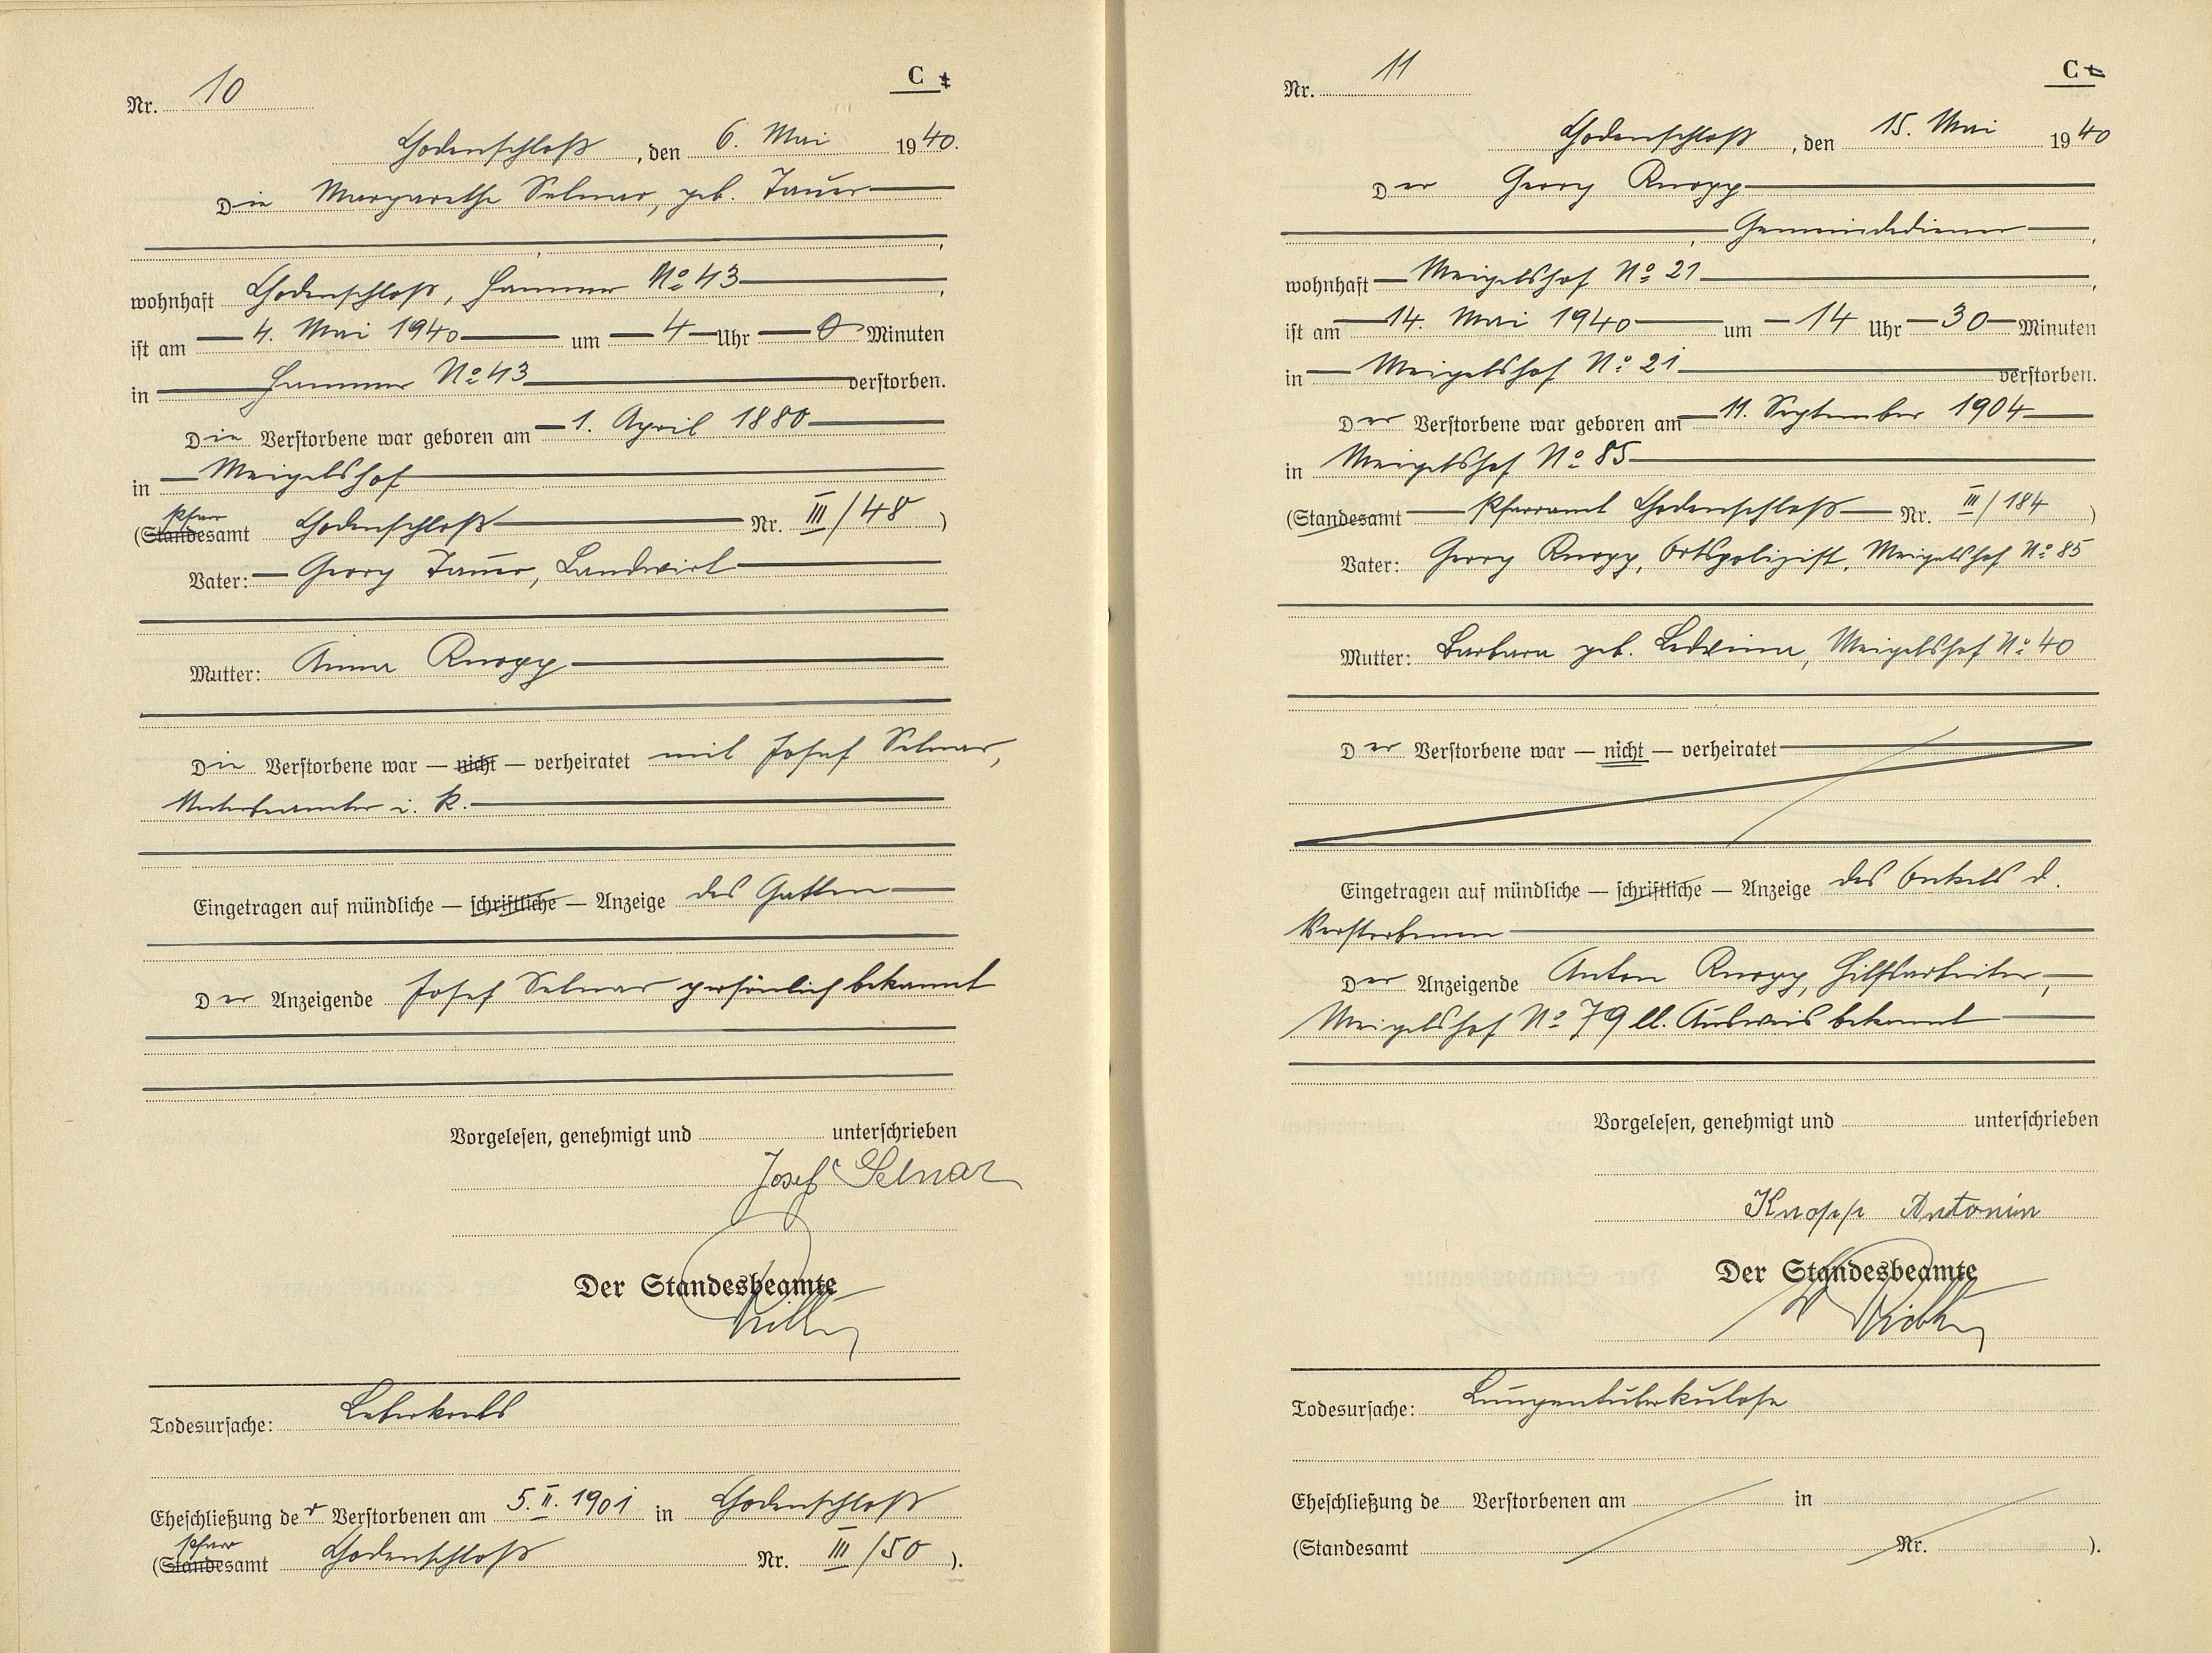 Nr. 10
C
Chodenschloß, den 6. Mai 1940.
Die Margarethe Selnar, geb. Tauer
wohnhaft Chodenschloß, Hammer No 43,
ist am 4. Mai 1940 um 4 Uhr 0 Minuten
in Hammer No 43 verstorben.
Die Verstorbene war geboren am 1. April 1880
in Meigelshof
Pfarr
(Standesamt Chodenschloß Nr. III/48)
Vater: Georg Tauer, Landwirt
Mutter: Anna Knopp
Die Verstorbene war — nicht — verheiratet mit Josef Selnar,
Unterbeamter i. R.
Eingetragen auf mündliche — schriftliche — Anzeige des Gatten
Der Anzeigende Josef Selnar persönlich bekannt
Vorgelesen, genehmigt und unterschrieben
Josef Selnar
Der Standesbeamte
Todesursache: Leberkrebs
Eheschließung der Verstorbenen am 5. II. 1901 in Chodenschloß
Pfarr
(Standesamt Chodenschloß Nr. III/50).
Nr. 11
C
Chodenschloß, den 15. Mai 1940
Der Georg Knopp
, Gemeindediener,
wohnhaft Meigelshof No 21,
ist am 14. Mai 1940 um 14 Uhr 30 Minuten
in Meigelshof No 21 verstorben.
Der Verstorbene war geboren am 11. September 1904
in Meigelshof No 85
(Standesamt Pfarramt Chodenschloß Nr. III/184)
Vater: Georg Knopp, Ortspolizist, Meigelshof No 85
Mutter: Barbara geb. Ledvina, Meigelshof No 40
Der Verstorbene war — nicht — verheiratet
Eingetragen auf mündliche — schriftliche — Anzeige des Onkels d.
Verstorbenen
Der Anzeigende Anton Knopp, Hilfsarbeiter,
Meigelshof No 79 lt. Ausweis bekannt
Vorgelesen, genehmigt und unterschrieben
Knopp Antonin
Der Standesbeamte
Todesursache: Lungentuberkulose
Eheschließung de Verstorbenen am in
(Standesamt Nr. ).